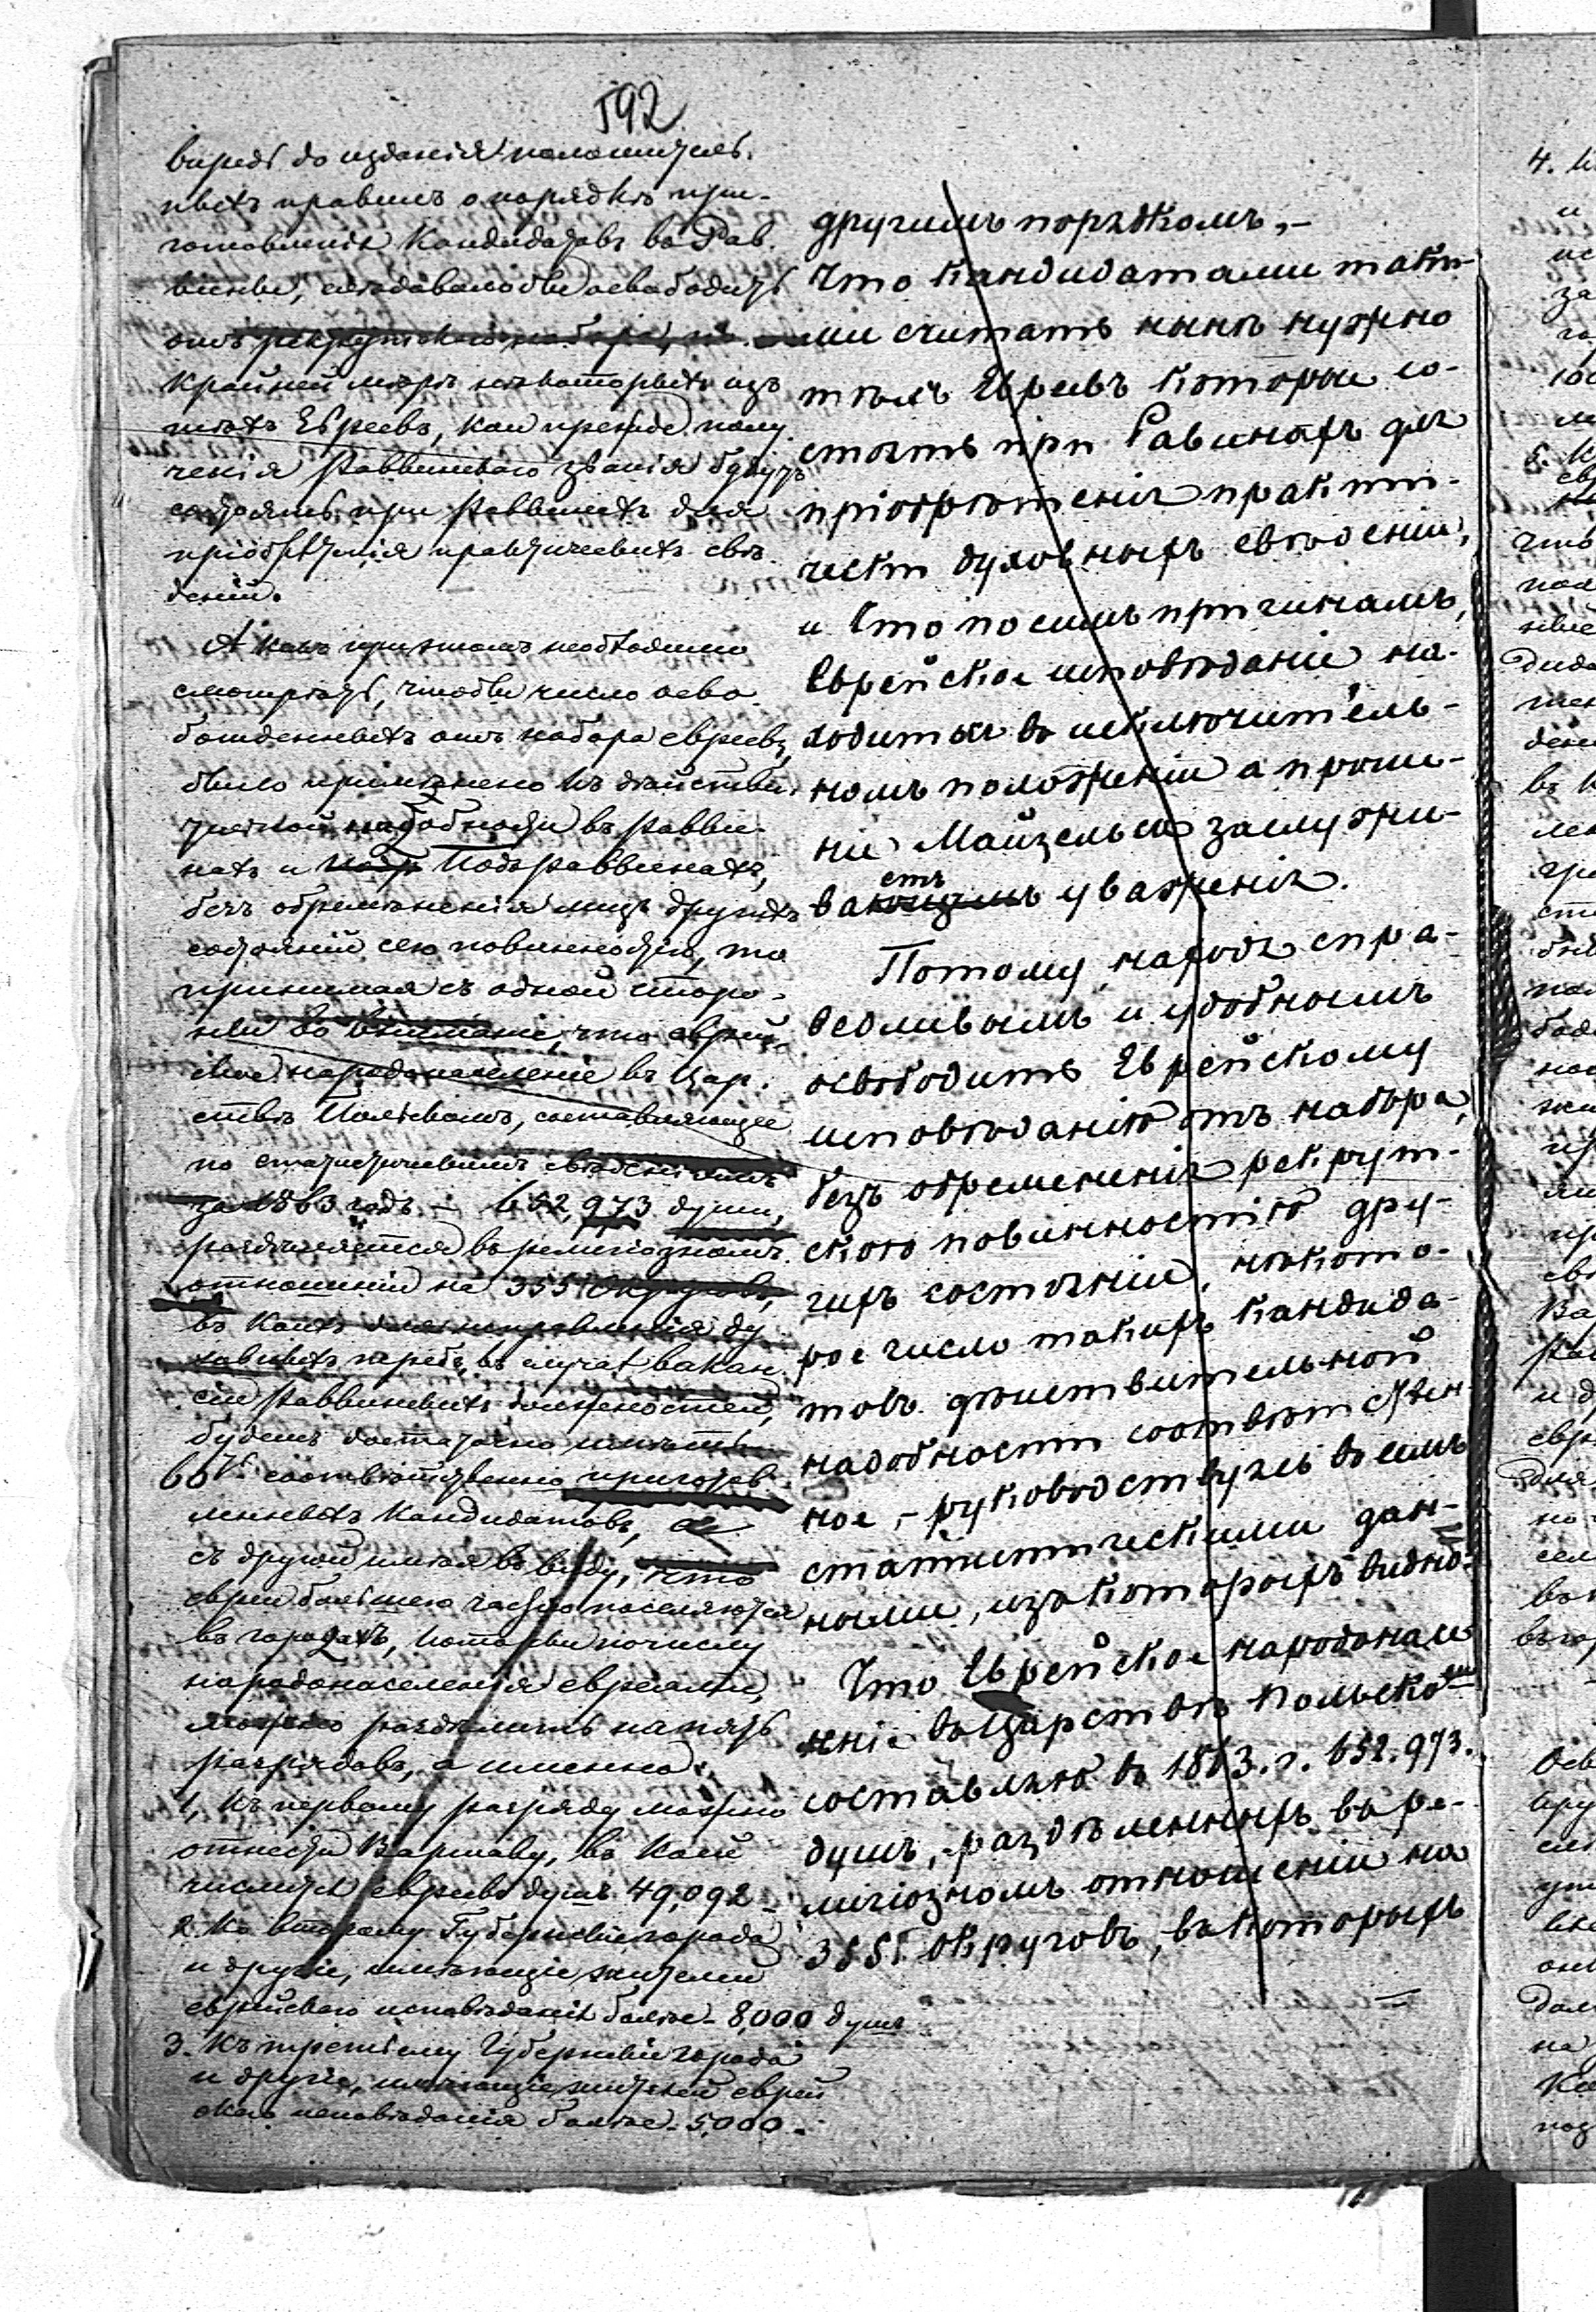 592
впредь до изданія положитель-
ныхъ правилъ о порядкѣ при-
готовленія Кандидатовъ въ Рав-
вины, слѣдовало бы освободить
отъ рекрутскаго набора, по
крайней мѣрѣ нѣкоторыхъ изъ
тѣхъ Евреевъ, кои прежде полу-
ченія Раввинскаго званія будутъ
состоять при Раввинахъ для
пріобрѣтенія практическихъ свѣ-
деній.
А какъ при этомъ необходимо
смотрѣть, чтобы число осво-
божденныхъ отъ набора евреевъ,
было примѣнено къ дѣйстви-
тельной надобности въ Равви-
нахъ и Подраввинахъ,
безъ обремененія лицъ другихъ
состояній сею повинностію, то
принимая съ одной сторо-
ны во вниманіе, что еврей-
ское народонаселеніе въ Цар-
ствѣ Польскомъ, составляющее
по статистическимъ свѣдѣніямъ
за 1863 годъ - 652,973 души,
раздѣляется въ религіозномъ
отношеніи на 355 Округовъ,
въ коихъ для исправленія ду-
ховныхъ требъ, въ случаѣ вакан-
сіи Раввинскихъ должностей,
будетъ достаточно имѣть
60 соотвѣтственно приготов-
ленныхъ Кандидатовъ, а
съ другой имѣя въ виду, что
евреи большею частію поселяются
въ городахъ, которые по числу
народонаселенія евреями,
можно раздѣлить на пять
разрядовъ, а именно:
1, Къ первому разряду можно
отнести Варшаву, въ коей
числится евреевъ душъ 49,092 -
2. Ко второму Губернскіе города
и другіе, имѣющіе жителей
еврейскаго исповѣданія болѣе - 8,000 душъ
3. Къ третьему Губернскіе города
и другіе, имѣющіе жителей еврей
скаго исповѣданія болѣе - 5,000 -
другимъ порядкомъ, -
Что Кандидатами таки-
ми считать нынѣ нужно
тѣхъ Евреевъ которые со-
стоятъ при Равинахъ для
пріобрѣтенія практи-
чески духовныхъ свѣдѣній,
и Что по симъ причинамъ,
Еврейское исповѣданіе на-
ходится въ исключитель-
номъ положеніи а проше-
ніе Майзельса заслужи-
ваетъ уваженія.
Потому, находя спра-
ведливымъ и удобнымъ
освободить Еврейскому
исповѣданію отъ набора,
безъ обремененія рекрут-
скою повинностію дру-
гихъ состояній, нѣкото-
рое число такихъ кандида-
товъ дѣйствительной
надобности соотвѣтствен-
ное, - руководствуясь въ семъ
статистическими дан-
ными, изъ которыхъ видно:
Что Еврейское народонасе
леніе въ Царствѣ Польскомъ
составляю въ 1863. г. 652.973.
душъ, раздѣленныхъ въ ре-
лигіозномъ отношеніи на
355. округовъ, въ которыхъ